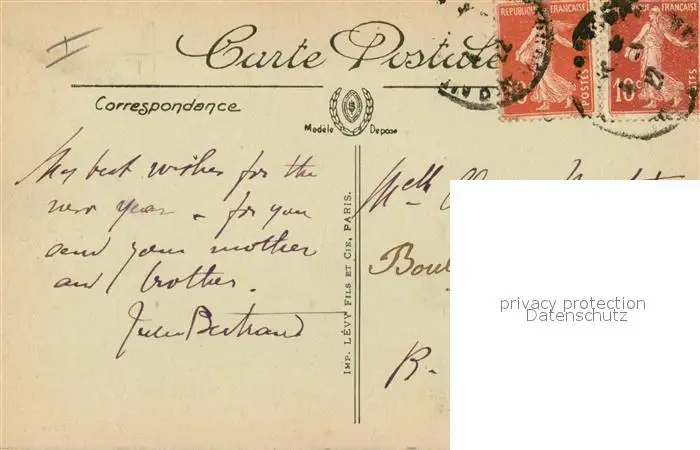 Carte Postale
REPUBLIQUE FRANÇAISE
FRANÇAISE
POSTES
10c
POSTES
Correspondance
Modèle Déposé
My best wishes for the
new year - for you
and your mother
and brother.
Jules Bertrand
IMP. LÉVY FILS ET CIE, PARIS.
Melle
Boul
R.
privacy protection
Datenschutz